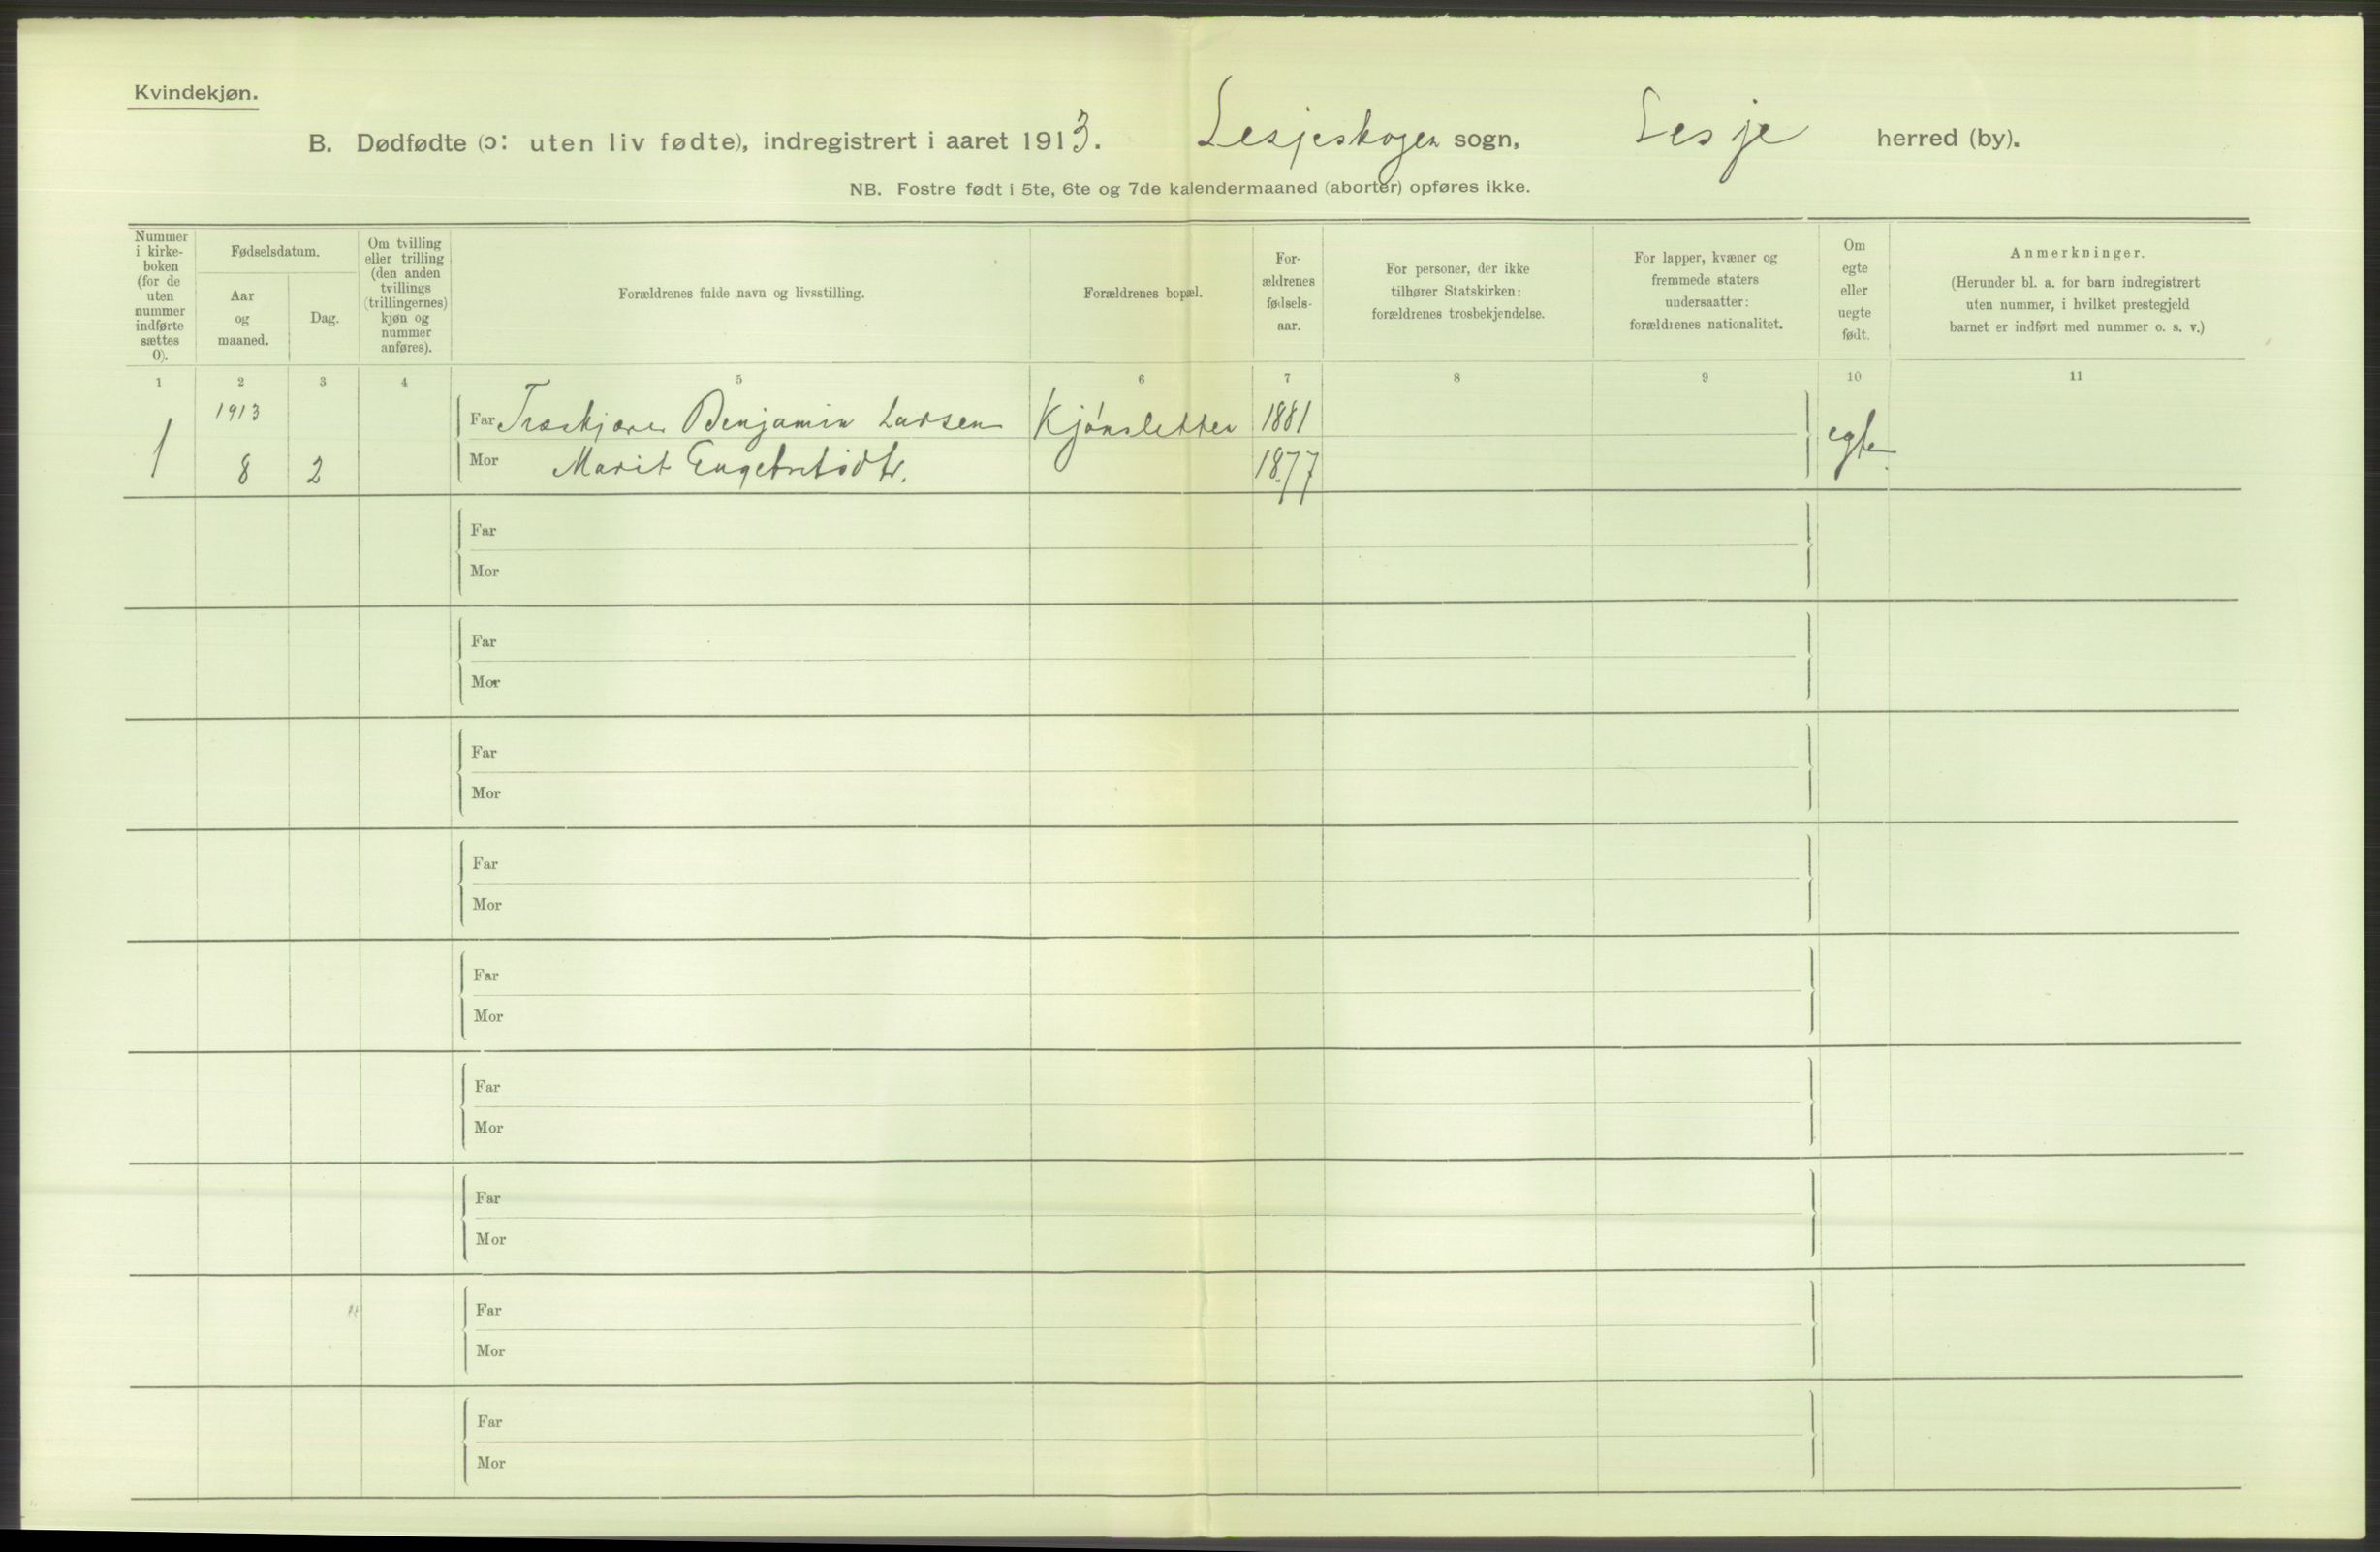 Kvindekjøn.
B. Dødfødte (ɔ: uten liv fødte), indregistrert i aaret 1913. Lesjeskogen sogn, Lesje herred (by).
NB. Fostre født i 5te, 6te og 7de kalendermaaned (aborter) opføres ikke.
Nummer
i kirke-
boken
(for de
uten
nummer
indførte
sættes
0).
Fødselsdatum.
Aar
og
maaned.
Dag.
Om tvilling
eller trilling
(den anden
tvillings
(trillingernes)
kjøn og
nummer
anføres).
Forældrenes fulde navn og livsstilling.
Forældrenes bopæl.
For-
ældrenes
fødsels-
aar.
For personer, der ikke
tilhører Statskirken:
forældrenes trosbekjendelse.
For lapper, kvæner og
fremmede staters
undersaatter:
forældrenes nationalitet.
Om
egte
eller
uegte
født.
Anmerkninger.
(Herunder bl. a. for barn indregistrert
uten nummer, i hvilket prestegjeld
barnet er indført med nummer o. s. v.)
1 2 3 4 5 6 7 8 9 10 11
1913
Far Træskjærer Benjamin Larsen Kjønsletten 1881
1 8 2 Mor Marit Engebretsdtr. 1877 egte
Far
Mor
Far
Mor
Far
Mor
Far
Mor
Far
Mor
Far
Mor
Far
Mor
Far
Mor
Far
Mor